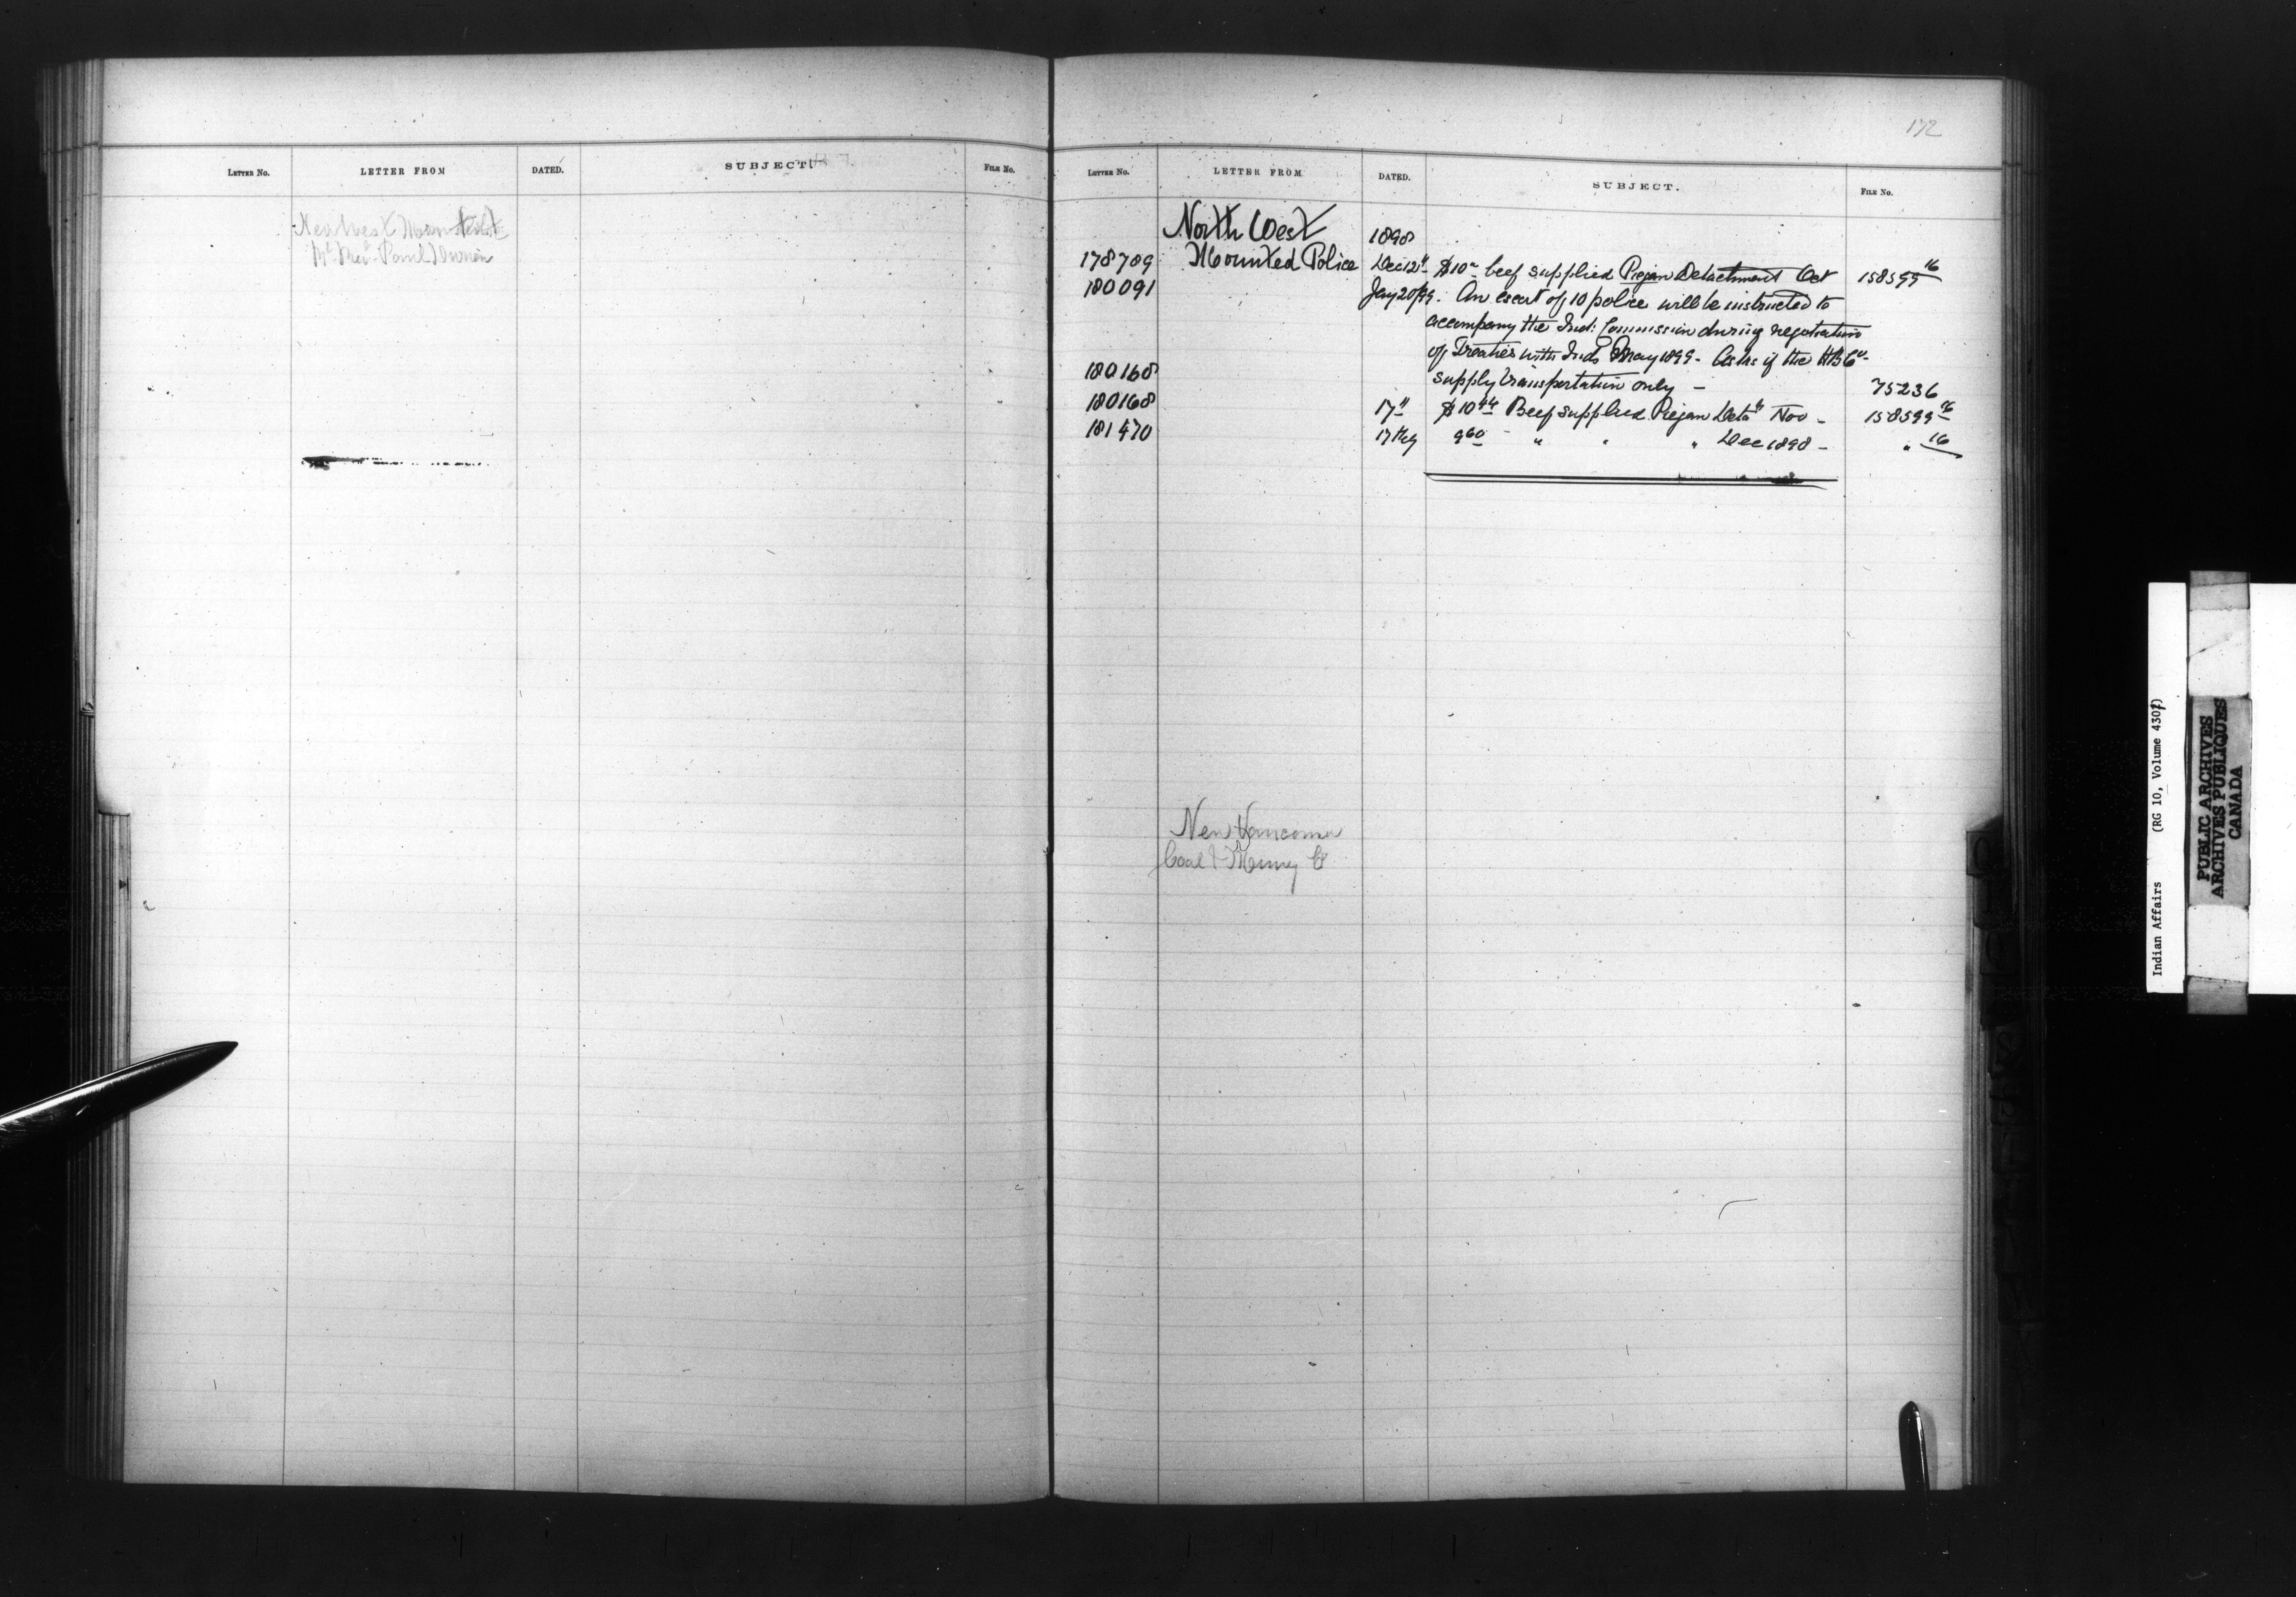 LETTER No. LETTER FROM DATED. SUBJECT. FILE No.
172
LETTER No. LETTER FROM DATED. SUBJECT. FILE No.
North West 1898
178709 Mounted Police Dec 12" $10 beef supplied Piegan Detachment Oct 158599 16
180091 Jany 20/99. An escort of 10 police will be instructed to
accompany the Ind: Commission during negotiation
of Treaties with Inds May 1899 - Asks if the HBCo -
180168 supply transportation only - 75236
180168 17" $10 44 Beef supplied Piegan Deta" Nov - 158599 16
181470 9 60 " " " Dec 1898 - " 16
New Vancouver
Coal & Mining Co
Indian Affairs (RG 10, Volume 4307)
PUBLIC ARCHIVES
ARCHIVES PUBLIQUES
CANADA